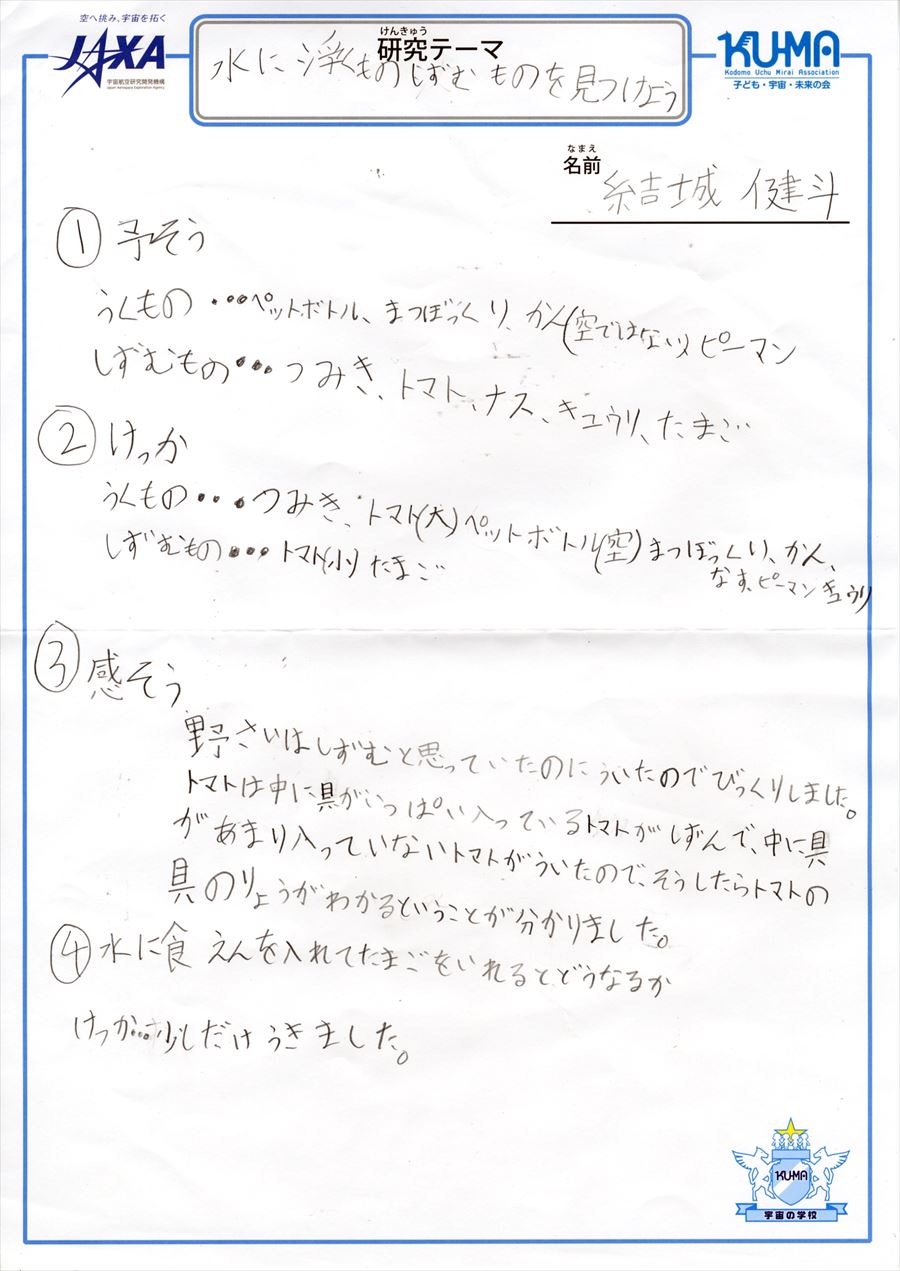 空へ挑み、宇宙を拓く
JAXA
宇宙航空研究開発機構
Japan Aerospace Exploration Agency
KU-MA
Kodomo Uchu Mirai Association
子ども・宇宙・未来の会
けんきゅう
研究テーマ
水に浮くものしずむものを見つけよう
なまえ
名前
結城 健斗
① 予そう
うくもの・・・ペットボトル、まつぼっくり、かん(空ではない)、ピーマン
しずむもの・・・つみき、トマト、ナス、キュウリ、たまご
② けっか
うくもの・・・つみき、トマト(大)ペットボトル(空)まつぼっくり、かん、
なす、ピーマン キュウリ
しずむもの・・・トマト(小)たまご
③ 感そう
野さいはしずむと思っていたのにういたのでびっくりしました。
トマトは中に具がいっぱい入っているトマトがしずんで、中に具
があまり入っていないトマトがういたので、そうしたらトマトの
具のりょうがわかるということが分かりました。
④ 水に食えんを入れてたまごをいれるとどうなるか
けっか…少しだけうきました。
KU-MA
宇宙の学校